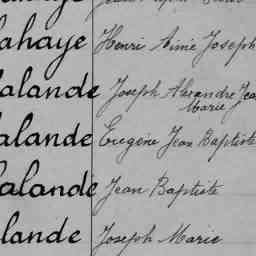 ahaye Henri Aimé Joseph
alande Joseph Alexandre Jean
Marie
alande Eugène Jean Baptiste
alande Jean Baptiste
lande Joseph Marie